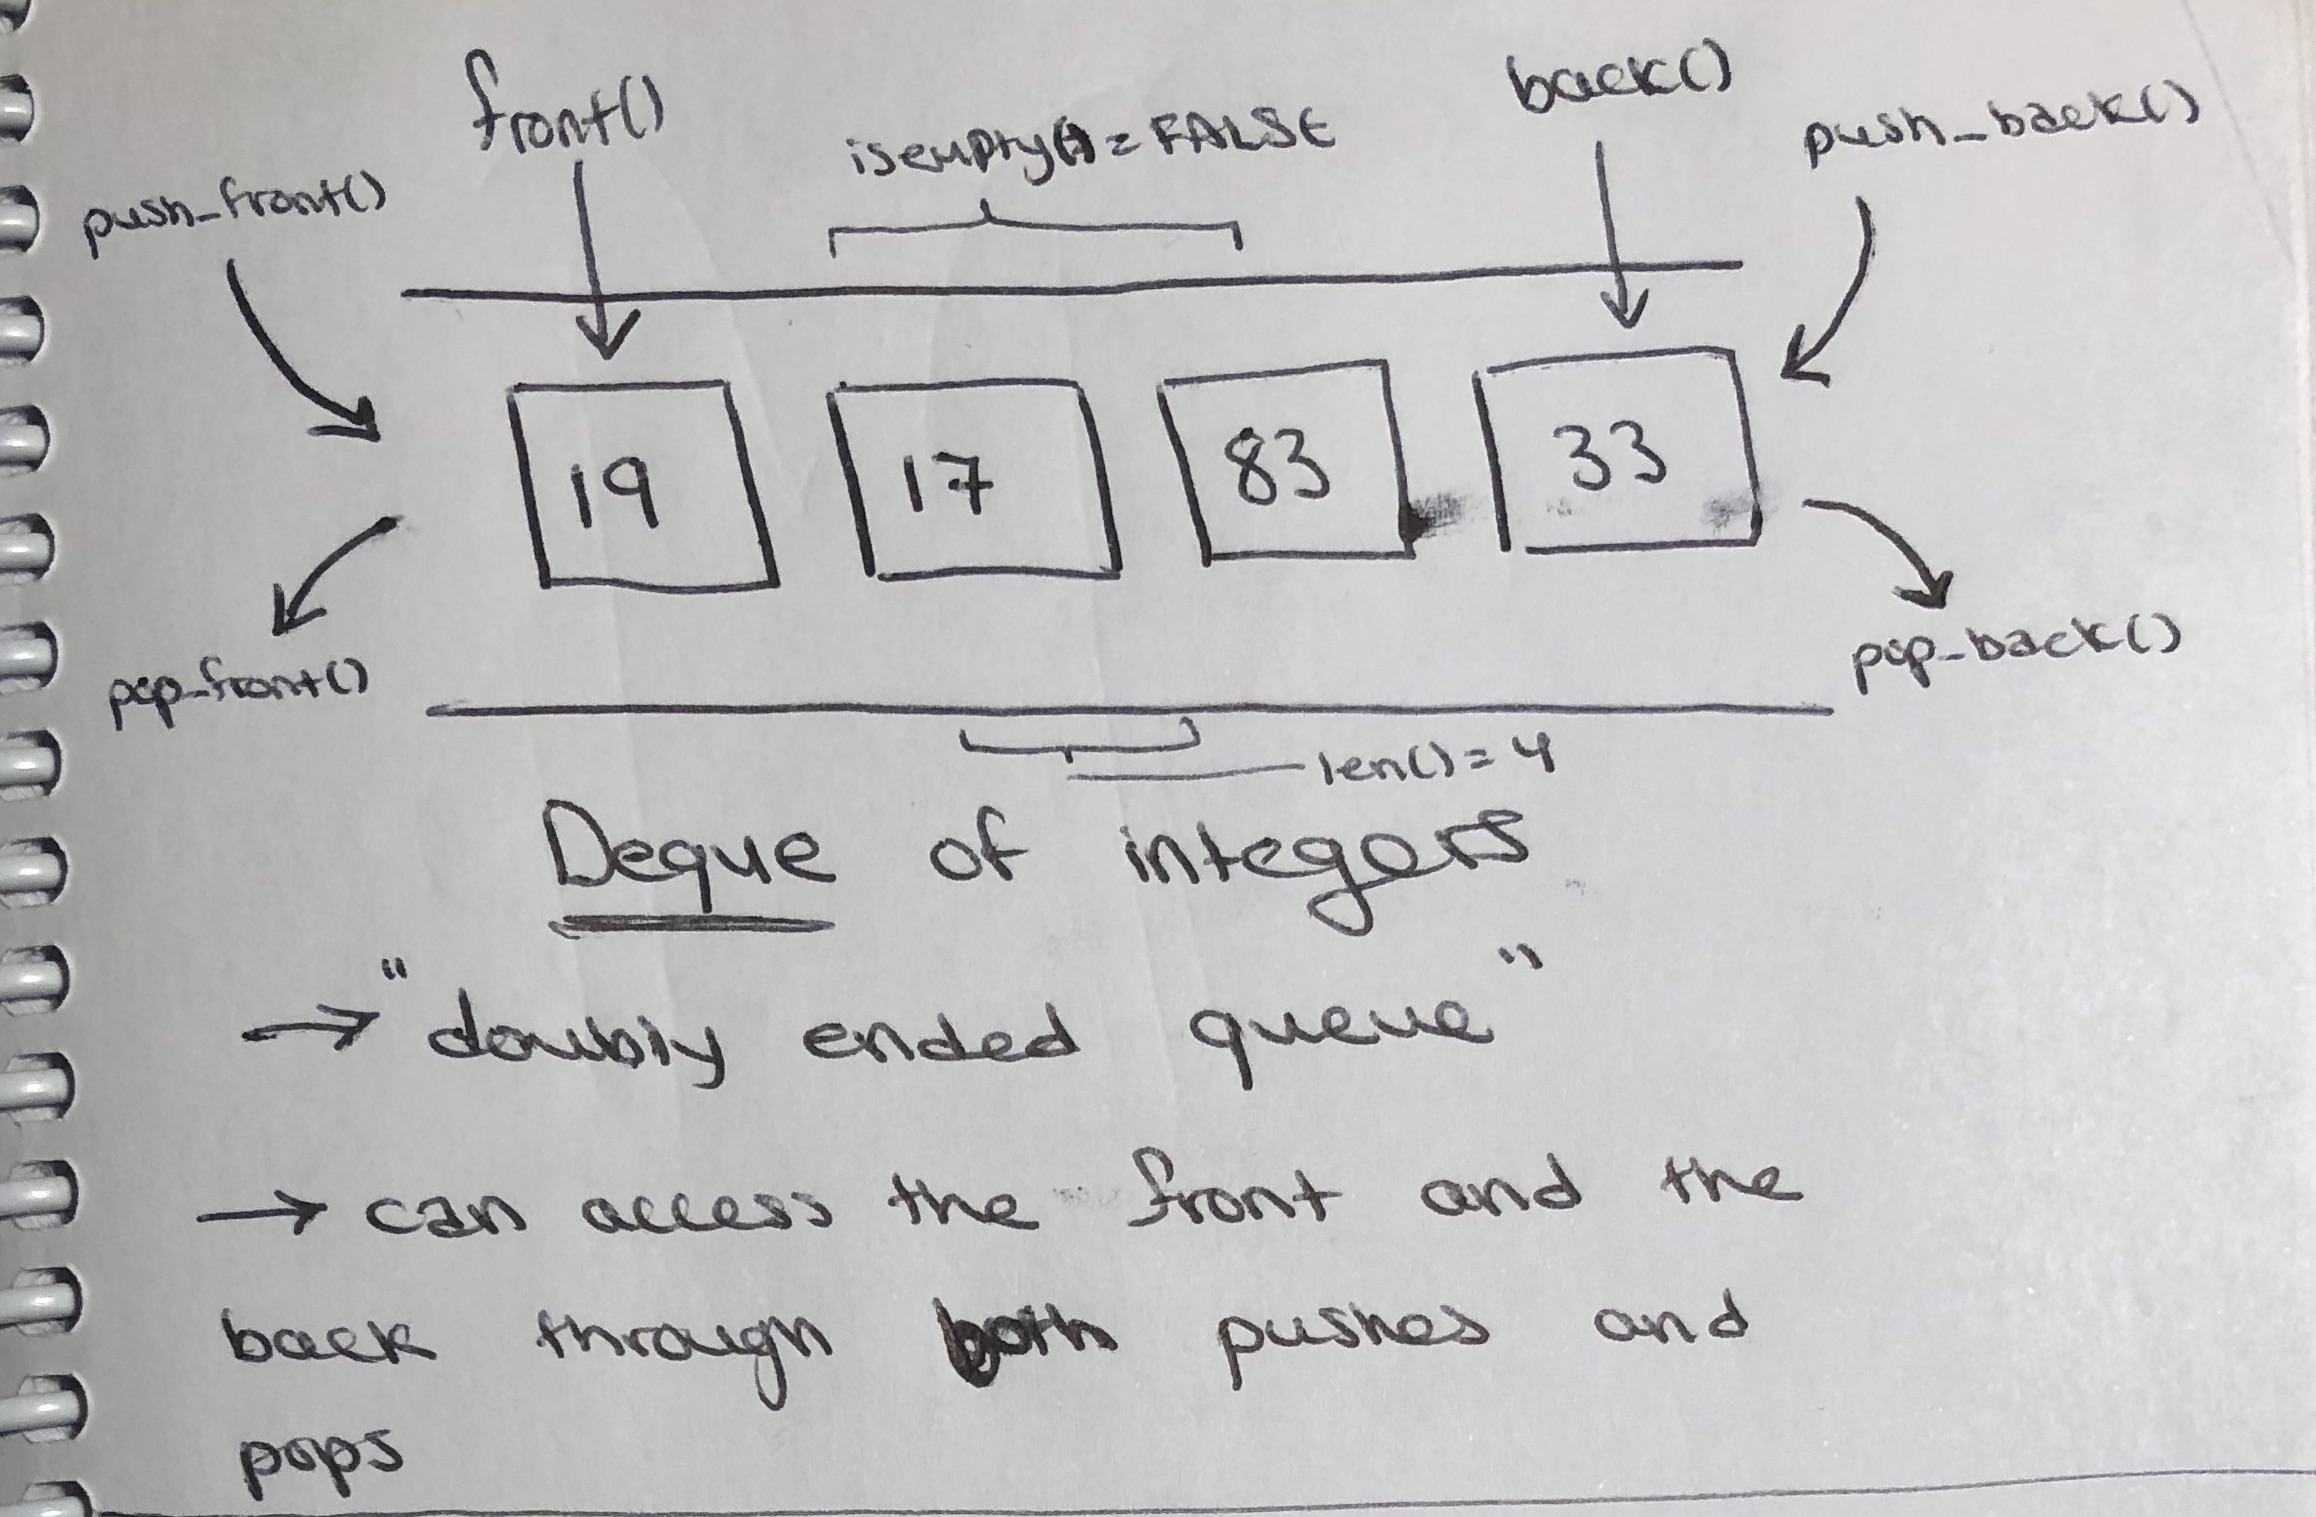 front()
back()
isempty() = FALSE
push_back()
push_front()
19
17
83
33
pop_front()
pop_back()
len() = 4
Deque of integers
→ "doubly ended queue"
→ can access the front and the
back through both pushes and
pops